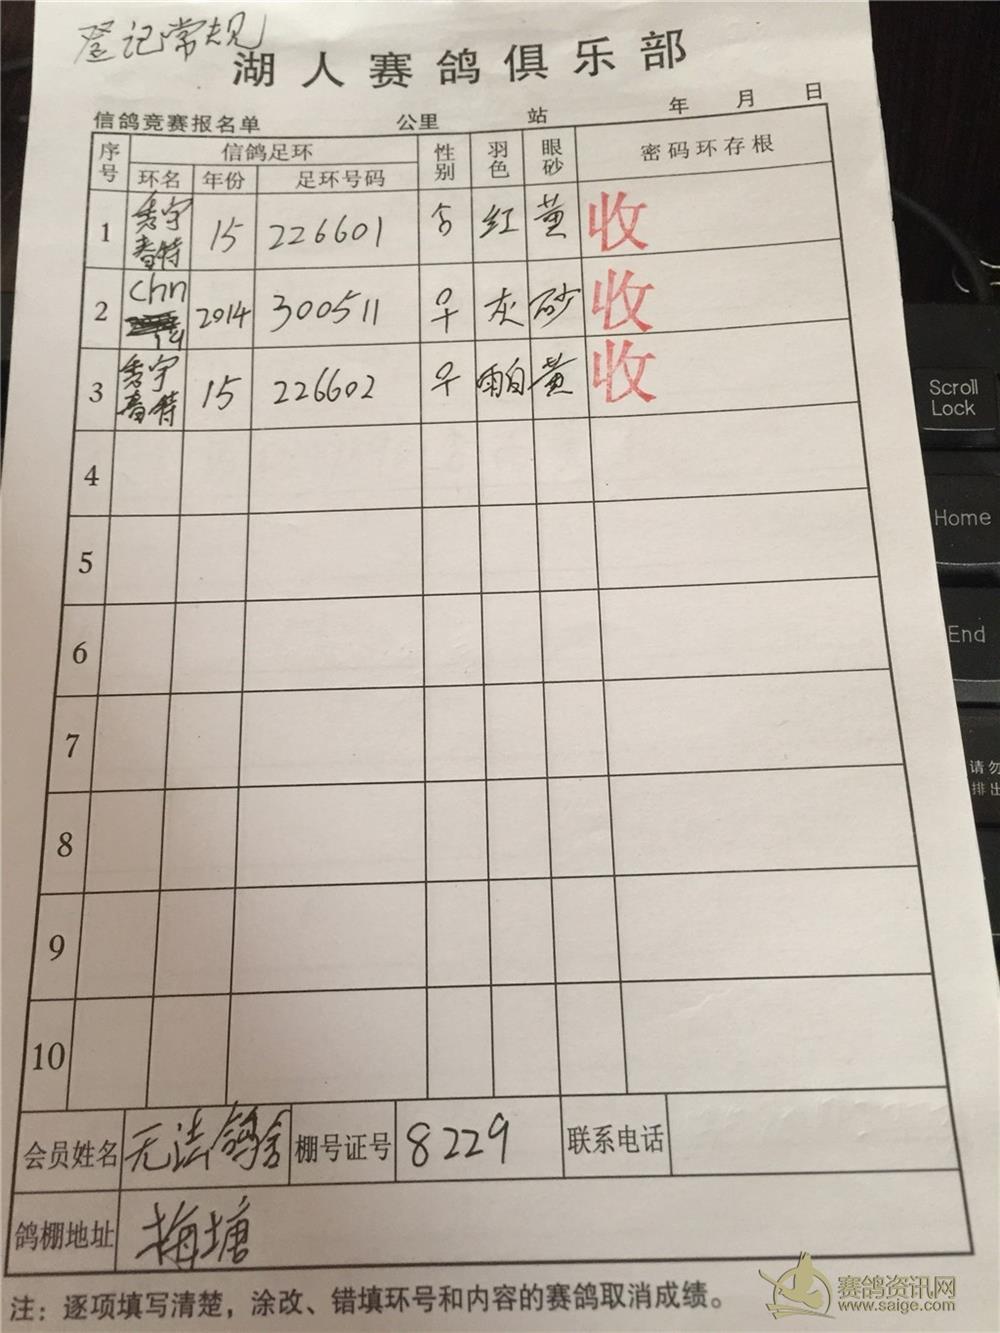 登记常规
湖人赛鸽俱乐部
信鸽竞赛报名单 公里 站 年 月 日
序号 信鸽足环 性别 羽色 眼砂 密码环存根
环名 年份 足环号码
1 秀宇 15 226601 红 黄 收
2 chn 2014 300511 灰 砂 收
3 秀宇 15 226602 雨白 黄 收
4
5
6
7
8
9
10
会员姓名 无法鸽舍 棚号证号 8229 联系电话
鸽棚地址 梅塘
注：逐项填写清楚，涂改、错填环号和内容的赛鸽取消成绩。
Scroll Lock
Home
End
请勿
排出
赛鸽资讯网
www.saige.com